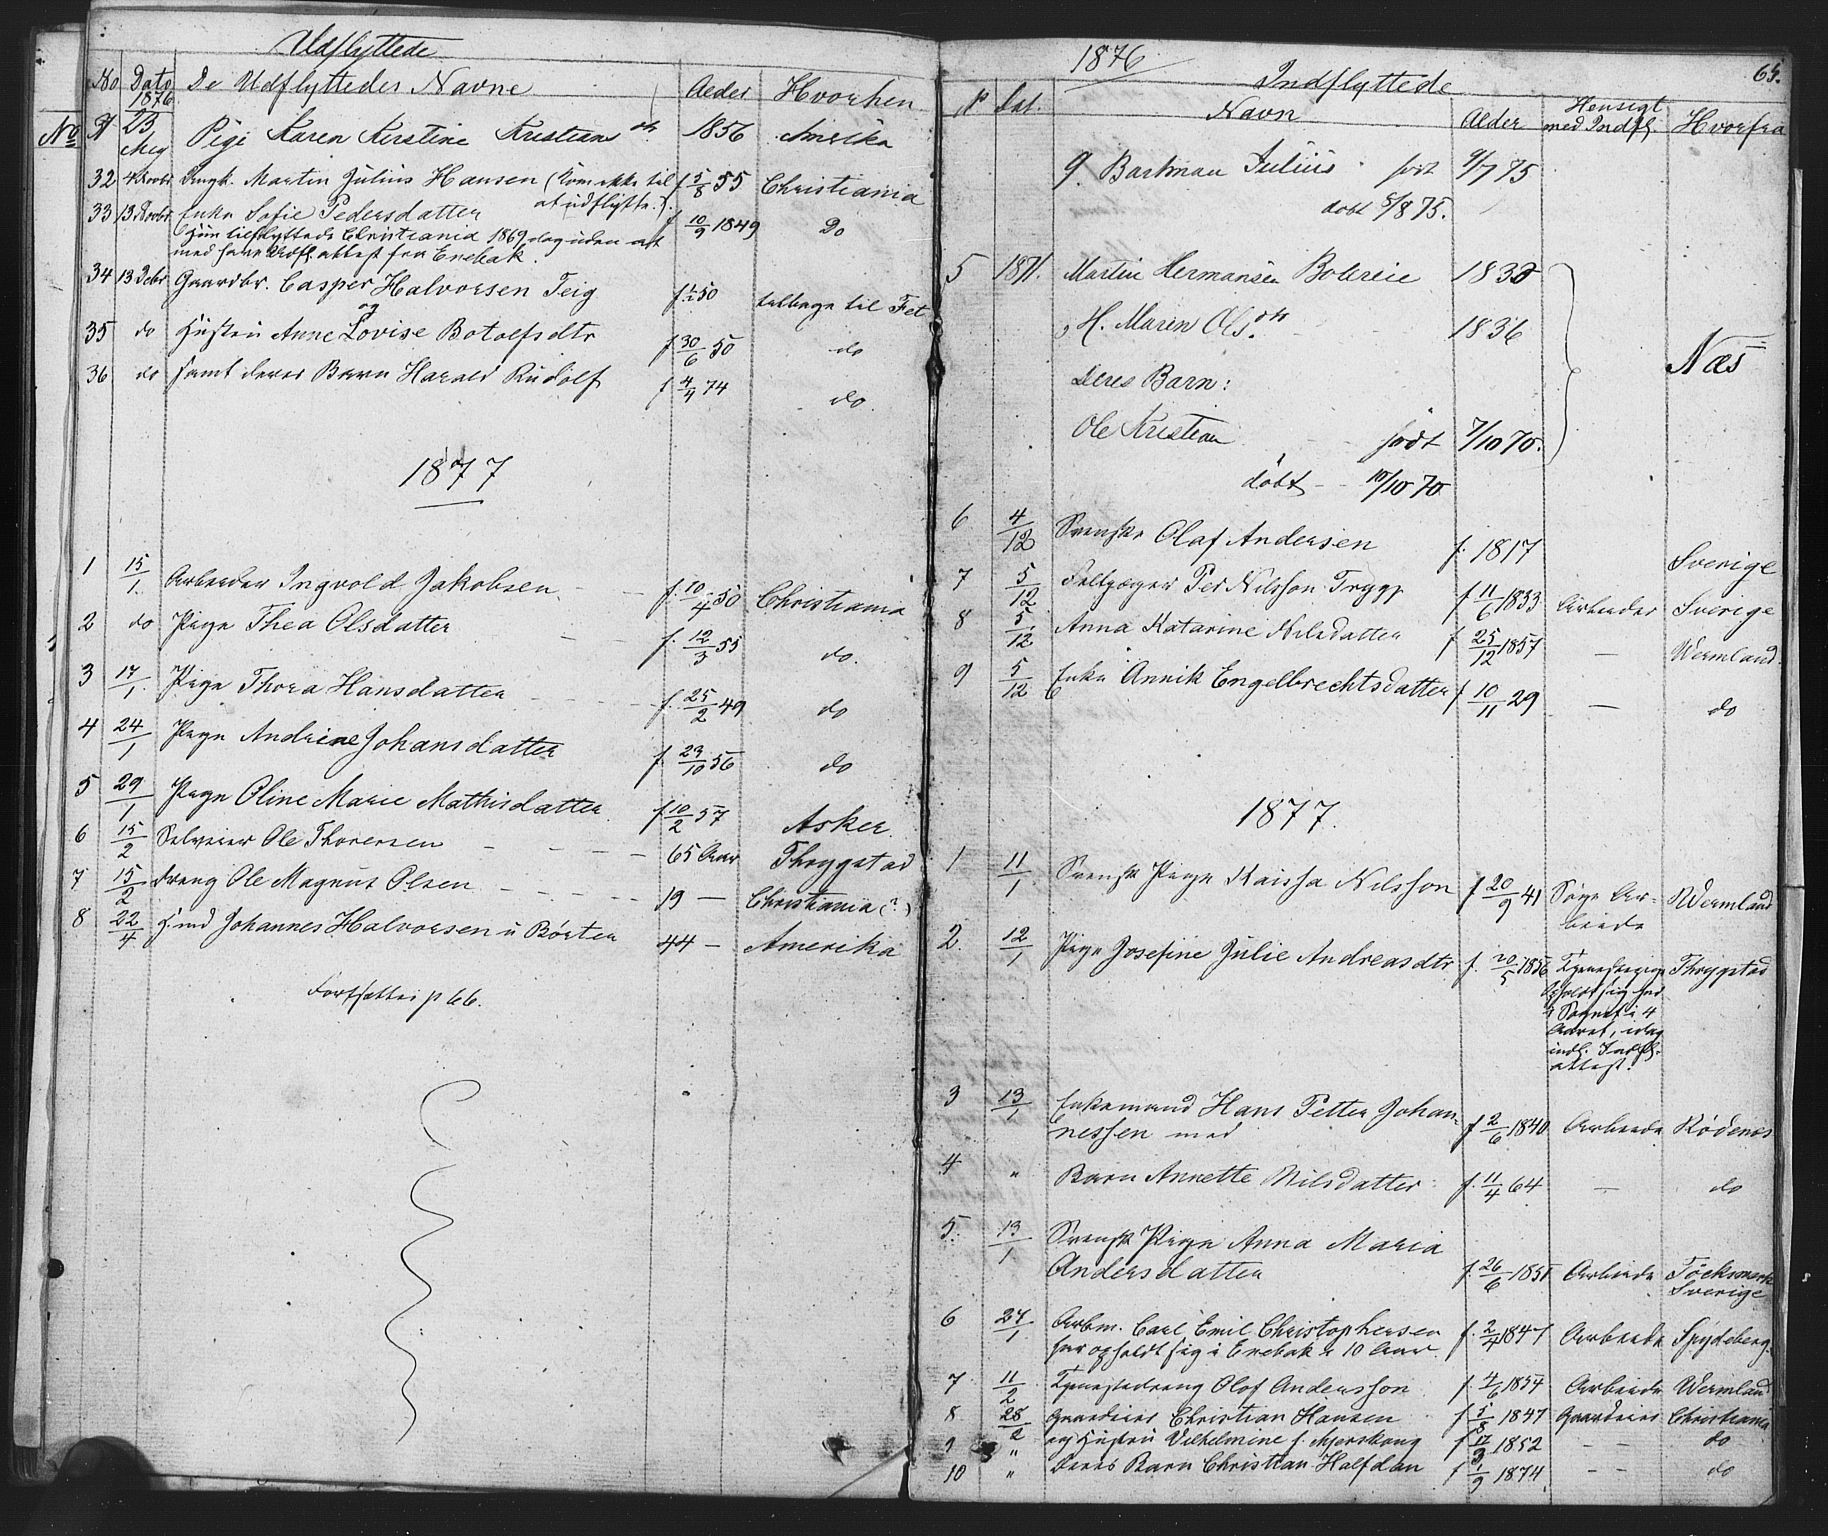 Udflyttede
No Dato De Udflyttedes Navne Alder Hvorhen
1876
No
23 Pige Karen Kirstine Kristiansdtr 1856 Amerika
32 4 Novbr Ungk. Martin Julius Hansen (kom ikke til f 5/8 55 Christiania
at udflytte.)
33 13 Enke Sofie Pedersdatter f 10/9 1849 Do
Hun tilflyttede Christiania 1869, dog uden at
med Udfl. attest fra Enebak.
34 13 Debr Gaardbr. Casper Halvorsen Teig f 50 tilbage til Fet
og
35 do Hustru Anne Lovise Botolfsdtr f 30/6 50 do
36 do samt deres Barn Harald Rudolf f 4/4 74 do.
1877
1 15/1. Arbeider Ingvold Jakobsen f. 10/4 50 Christiania
2 do Pige Thea Olsdatter f. 12/3 55 do.
3 17/1. Pige Thora Hansdatter f. 25/2 49 do
4 24/1 Pige Andrine Johansdatter f. 23/10 56 do
5 29/1 Pige Oline Marie Mathisdatter f. 10/2 57 Asker.
6 15/2 Selveier Ole Thoresen 65 Aar Thrygstad
7 15/2 Dreng Ole Magnus Olsen 19 — Christiania (?)
8 22/4 Johannes Halvorsen u Börter 44 — Amerika
Fortsættes p 66.
1876
65.
Indflyttede
N Dat. Navn Alder Hensigt med Indfl. Hvorfra
g. Bartman Julius født 9/7 75
døbt 5/8 75.
5 1871. Martin Hermansen Bolereie 1830
H. Maren Olsdtr 1836
Næs
Deres Barn:
Ole Kristian født 7/10 70.
døbt 10/10 70
6 4/12 Svenske Olaf Andersen f. 1817 Sverige
7 5/12 Feltjæger Per Nilsson Trygg f 11/6 1833 Arbeider Sverige
8 5/12 Anna Katarine Nilsdatter f 25/12 1857 — Wermland.
9 5/12 Enke Annik Engelbrechtsdatter f 10/11 29 — do
1877.
1 11/1 Svensk Pige Kaisa Nilsson f 20/9 41 Søge Ar- Wermland
beide
2. 12/1 Pige Josefine Julie Andreasdtr f. 20/5 1856 Tjenestepige Thrygstad
opholdt sig her
i Sognet i 4
Aaret, idag
indl. Indfl.
attest.
3 13/1 Enkemand Hans Petter Johan-
nessen med f 2/6 1840 Arbeide Rødenes
4 " Barn Annette Nilsdatter f. 11/4 64 — do
5. 13/1 Svensk Pige Anna Maria
Andersdatter f. 26/6 1851 Arbeide Töcksmark
Sverige
6 24/1 Arbm. Carl Emil Christophersen f. 2/4 1847 Arbeide Spydeberg.
har opholdt sig i Enebak i 10 Aar.
7 11/2 Tjenestedreng Olof Andersson f. 4/6 1854 Arbeide Wermland
8 28/2 Gaardeier Christian Hansen f 5/8 1847 Gaardeier Christiania
9 " og Hustru Vilhelmine f. Mjerskaug f 17/3 1852 — — do
10 " Deres Barn Christian Halfdan f 1/9 1874 — — do